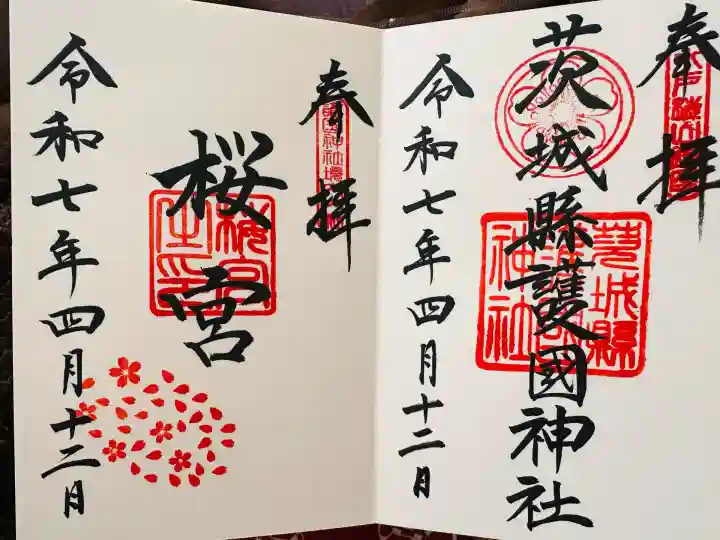 奉拝
茨城縣護國神社
茨城縣
神社
令和七年四月十二日
奉拝
桜宮
令和七年四月十二日